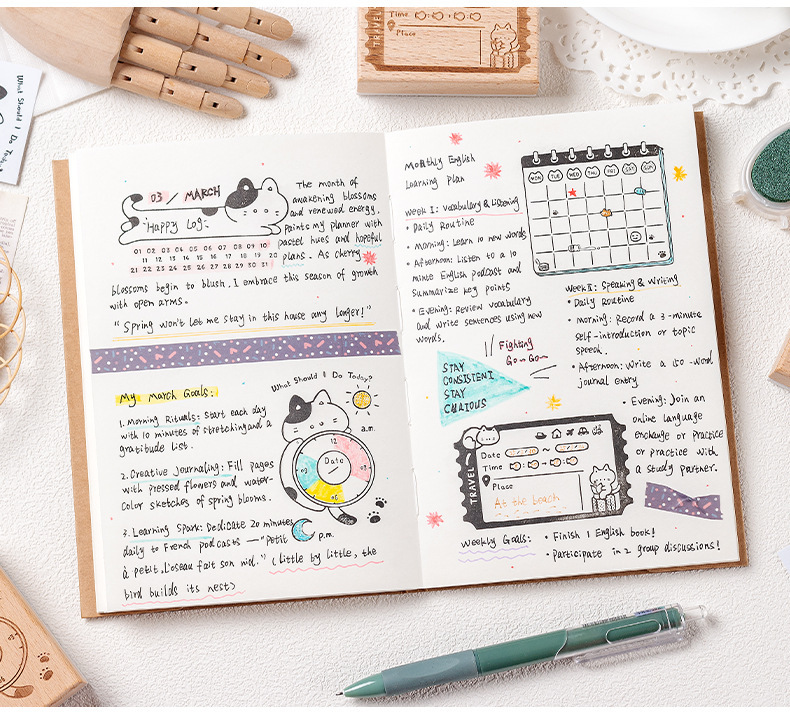 What Should I Do Today?
TRAVEL
Time
Place
03 / MARCH
Happy Log:
01 02 03 04 05 06 07 08 09 10
11 12 13 14 15 16 17 18 19 20
21 22 23 24 25 26 27 28 29 30 31
The month of
awakening blossoms
and renewed energy,
paints my planner with
pastel hues and hopeful
plans. As cherry
blossoms begin to blush, I embrace this season of growth
with open arms.
"Spring won't let me stay in this house any longer!"
My March Goals:
1. Morning Rituals: Start each day
with 10 minutes of stretching and a
gratitude list.
2. Creative journaling: Fill pages
with pressed flowers and water-
color sketches of spring blooms.
3. Learning Spark: Dedicate 20 minutes
daily to French podcasts — "Petit
à petit, l'oseau fait son nid." (little by little, the
bird builds its nest)
What Should I Do Today?
a.m.
12
Date
03
06
09
p.m.
Monthly English
Learning plan
Week I: Vocabulary & Listening
• Daily Routine
• Morning: Learn 10 new words
• Afternoon: Listen to a 10
minte English podcast and
Summarize key points
• Evening: Review vocabulary
and write sentences using new
words.
Fighting
Go~Go~
STAY
CONSISTENT
STAY
MON TUE WED THU FRI SAT SUN
Week II: Speaking & Writing
• Daily Routine
• morning: Record a 3-minute
self-introduction or topic
speech.
• Afternoon: Write a 150-word
journal entry
• Evening: Join an
online language
or practice
or practice with
a study partner.
TRAVEL
Date
Time
Place
At the beach
Weekly Goals:
• Finish 1 English book!
• Participate in 2 group discussions!